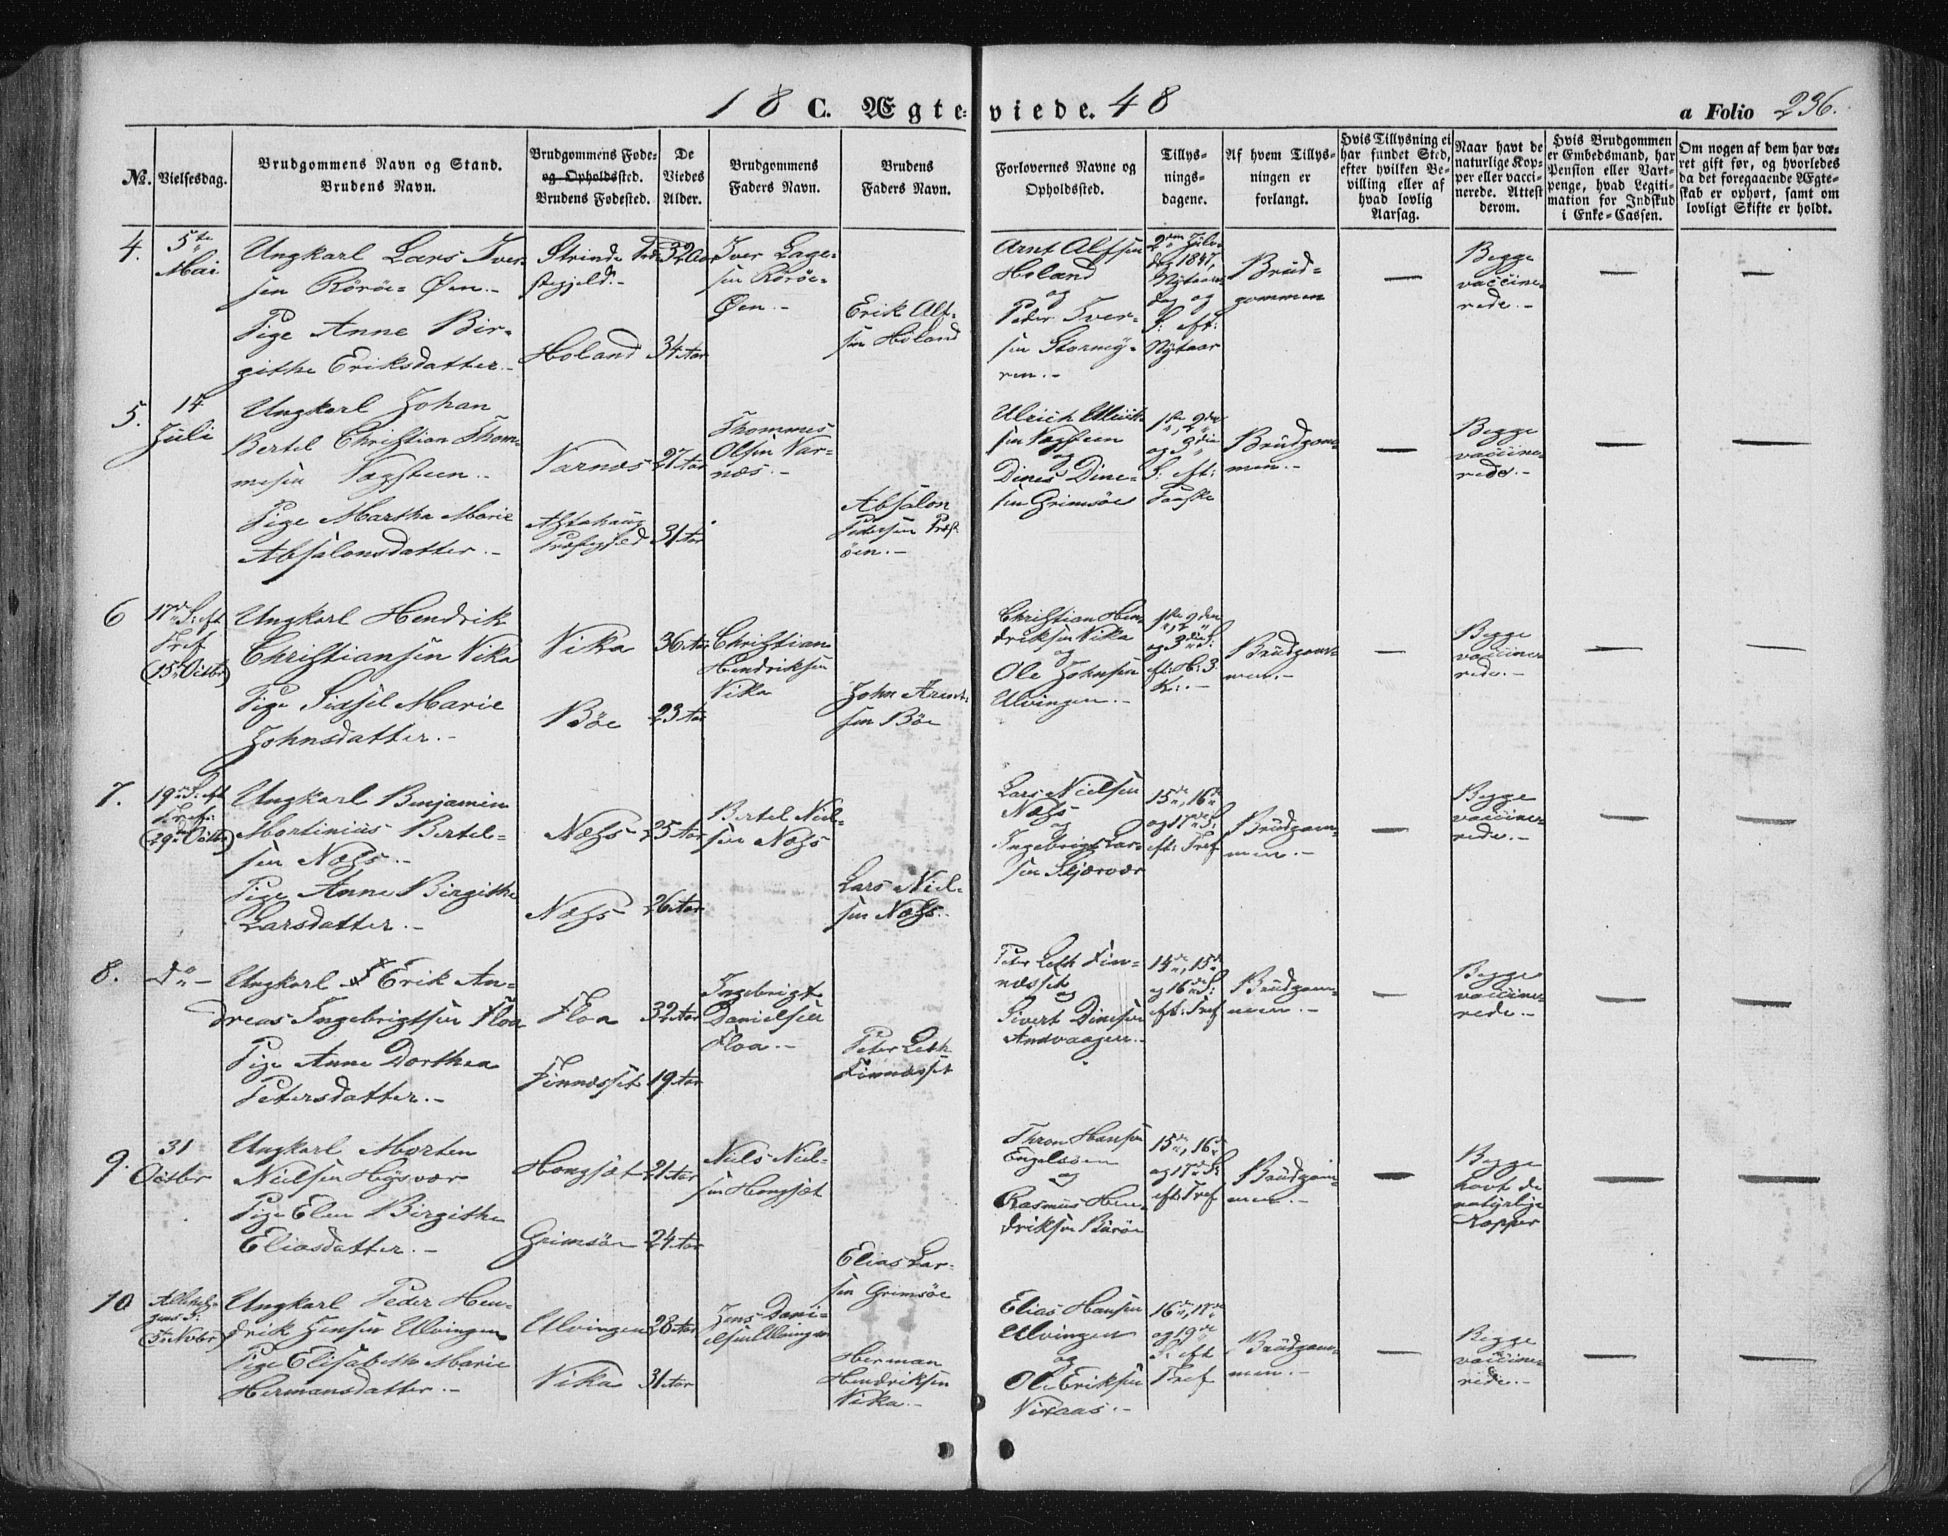 18 C. Ægteviede. 48
a Folio 236.
No.
Vielsesdag.
Brudgommens Navn og Stand.
Brudens Navn.
Brudgommens Føde-
og Opholdssted.
Brudens Fødested.
De
Viedes
Alder.
Brudgommens
Faders Navn.
Brudens
Faders Navn.
Forlovernes Navne og
Opholdssted.
Tillys-
nings-
dagene.
Af hvem Tillys-
ningen er
forlangt.
Hvis Tillysning ei
har fundet Sted,
efter hvilken Be-
villing eller af
hvad lovlig
Aarsag.
Naar havt de
naturlige Kop-
per eller vacci-
nerede. Attest
derom.
Hvis Brudgommen
er Embedsmand, har
Pension eller Vart-
penge, hvad Legiti-
mation for Indskud
i Enke-Cassen.
Om nogen af dem har væ-
ret gift før, og hvorledes
da det foregaaende Ægte-
skab er ophørt, samt om
lovligt Skifte er holdt.
4.
5te
Mai
Ungkarl Lars Iver-
sen Rörøe-Øen.-
Pige Anne Bir-
githe Eriksdatter.-
Strinde Præ-
stegjeld.-
Holand
32 Aar
34 Aar
Iver Lage-
sen Rörøe-
Øen.-
Erik Alf-
sen Holand
Arnt Alfsen
Holand
og
Peder Iver-
sen Stormy-
ren.-
2den Jule-
dag 1847,
Nytaars-
dag og
S: eft:
Nytaar
Brud-
gommen
—
Begge
vaccine-
rede.-
—
—
5.
14
Juli
Ungkarl Johan
Bertel Christian Thom-
mesen Vagsteen..
Pige Martha Marie
Absalonsdatter.-
Varnæs
Alstahaug
Præstegjeld
27 Aar
31 Aar
Thommes
Olsen Var-
næs.-
Absalon
Pedersen Præst-
øen.-
Ulrich Ulrik-
sen Vagsteen
og
Dines Dine-
sen Grimsøe
1ste, 2den
og 3die
S: eft:
Paaske
Brudgom-
men.-
—
Begge
vaccine-
rede.-
—
—
6
17de S: eft
Tref
(15de Octbr)
Ungkarl Hendrik
Christiansen Vika
Pige Sidsel Marie
Johnsdatter.-
Vika
Böe
36 Aar
23 Aar
Christian
Hendriksen
Vika
John Arent-
sen Böe
Christian Hen-
driksen Vika
og
Ole Johnsen
Ulvingen.-
1ste, 2den
og 3die S:
eft: H: 3
K:.-
Brudgom-
men.-
—
Begge
vaccine-
rede.-
—
—
7.
19de S: eft
Tref:
(29de Octbr)
Ungkarl Benjamin
Mortinius Bertel-
sen Næss.-
Pige Anne Birgithe
Larsdatter.-
Næss
Næss
25 Aar
26 Aar
Bertel Niel-
sen Næss
Lars Niel-
sen Næss.
Lars Nielsen
Næss
og
Ingebrigt Lar-
sen Skjærvær
15de, 16de
og 17de S:
eft: Tref
Brudgom-
men.-
—
Begge
vaccine-
rede.-
—
—
8.
Do -
Ungkarl Erik An-
dreas Ingebrigtsen Floa
Pige Anne Dorthea
Petersdatter.-
Floa
Finnæsset
32 Aar
19 Aar
Ingebrigt
Danielsen
Floa.-
Peter Leth
Finnæsset
Peter Leth Fin-
næsset
og
Sivert Dinesen
Andvaagen.-
14de, 15de
og 16de S:
eft: Tref
Brudgom-
men.-
—
Begge
vaccine-
rede.-
—
—
9.
31
Octbr
Ungkarl Morten
Nielsen Høysvær
Pige Elen Birgithe
Eliasdatter.-
Hongsæt
Grimsöe
21 Aar
24 Aar
Niels Niel-
sen Hongsæt
Elias Lar-
sen Grimsöe
Thron Hansen
Engelsöen
og
Rasmus Hen-
driksen Buröe
15de, 16de
og 17de S:
eft: Tref
Brudgom-
men.-
—
Begge
havt de
naturlige
Kopper
—
—
10
Allehel-
gens S:
(5te Novbr)
Ungkarl Peder Hen-
drik Jensen Ulvingen
Pige Elisabeth Marie
Hermansdatter.-
Ulvingen
Vika
28 Aar
31 Aar
Jens Dani-
elsen Ulvingen
Herman
Hendriksen
Vika.-
Elias Hansen
Ulvingen
og
Ole Eriksen
16de, 17de
og 19de
S: eft
Tref
Brudgom-
men.-
—
Begge
vaccine-
rede.-
—
—